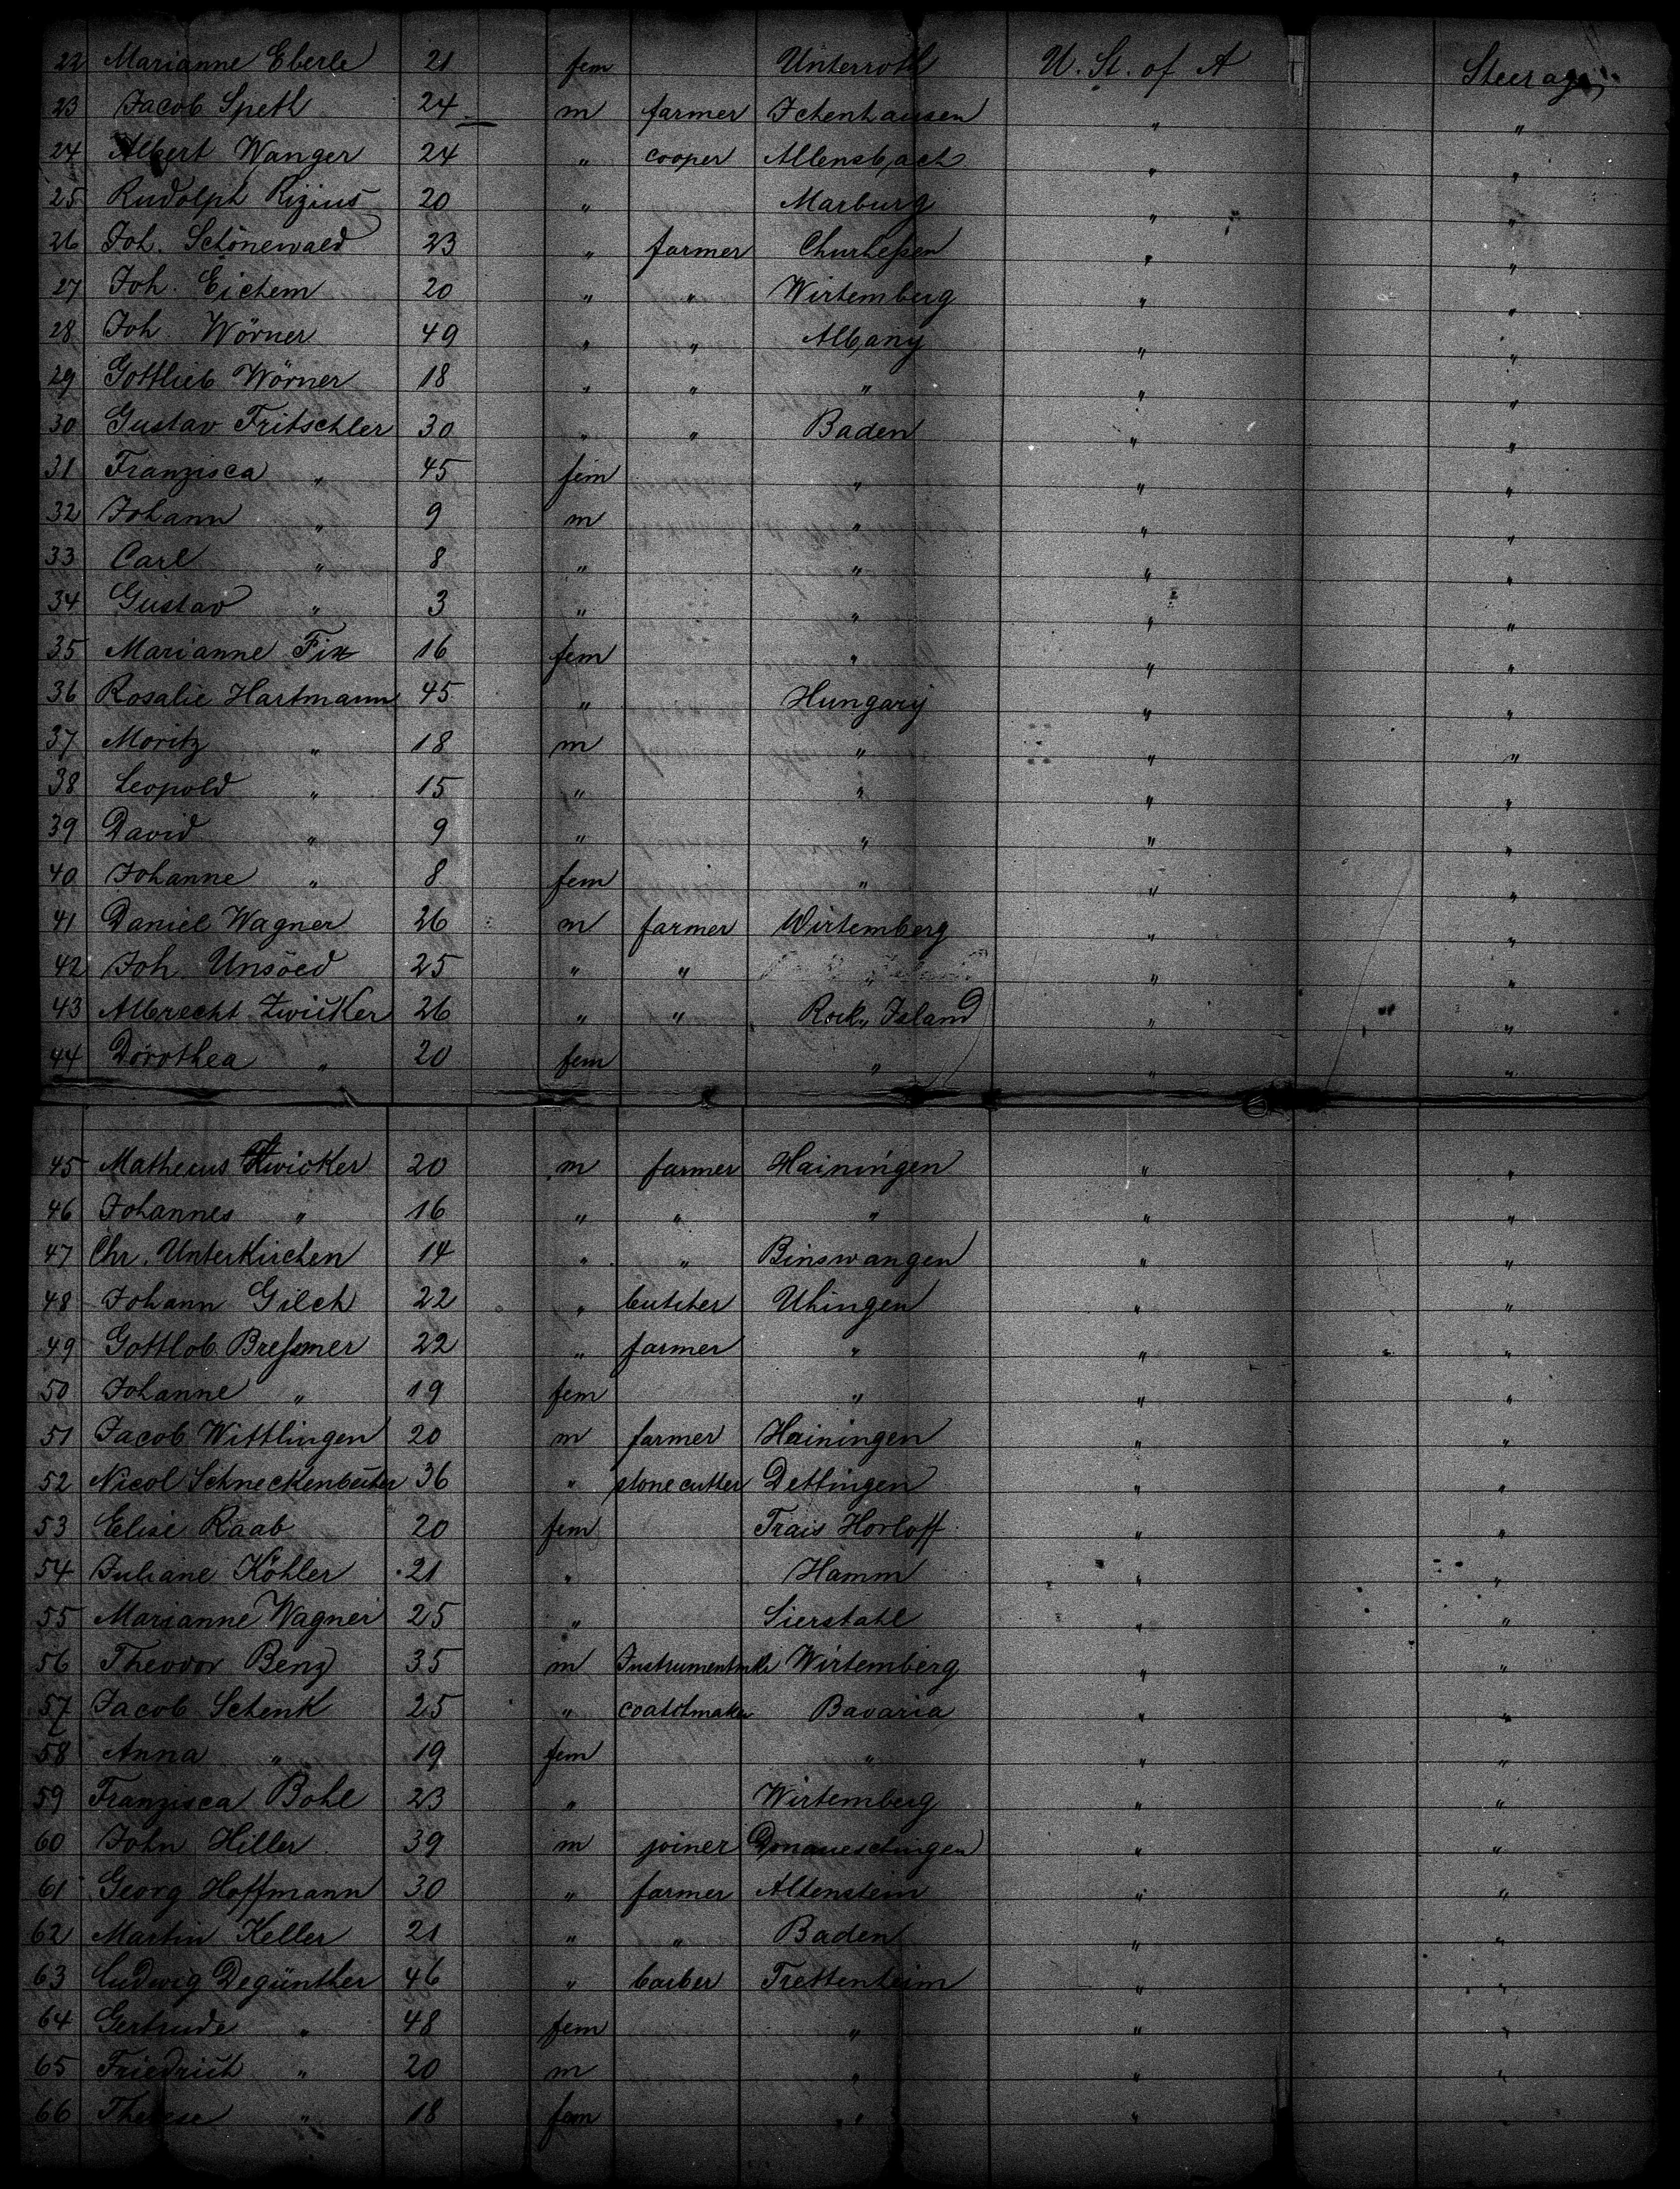 22 Marianne Eberle 21 fem Unterroth U. St. of A Steerage
23 Jacob Speth 24 m farmer Ichenhausen " "
24 Albert Wanger 24 " cooper Allensbach " "
25 Rudolph Rizius 20 " Marburg " "
26 Joh. Schönewald 23 " farmer Churheßen " "
27 Joh. Eichem 20 " " Wirtemberg " "
28 Joh Wörner 49 " " Albany " "
29 Gottlieb Wörner 18 " " " " "
30 Gustav Fritschler 30 " " Baden " "
31 Franzisca " 45 fem " " "
32 Johann " 9 m " " "
33 Carl " 8 " " " "
34 Gustav " 3 " " " "
35 Marianne Fix 16 fem " " "
36 Rosalie Hartmann 45 " Hungary " "
37 Moritz " 18 m " " "
38 Leopold " 15 " " " "
39 David " 9 " " " "
40 Johanne " 8 fem " " "
41 Daniel Wagner 26 m farmer Wirtemberg " "
42 Joh. Unsöed 25 " " " " "
43 Albrecht Zwicker 26 " " Rock Island " "
44 Dorothea " 20 fem " " "
45 Matheus Zwicker 20 m farmer Hainingen " "
46 Johannes " 16 " " " " "
47 Chr. Unterkirchen 14 " " Binswangen " "
48 Johann Gilch 22 " butcher Uhingen " "
49 Gottlob Breßmer 22 " farmer " " "
50 Johanne " 19 fem " " "
51 Jacob Wittlingen 20 m farmer Hainingen " "
52 Nicol 36 " stonecutter Dettingen " "
53 Elise Raab 20 fem Trais Horloff " "
54 Juliane Köhler 21 " Hamm " "
55 Marianne Wagner 25 " Sierstahl " "
56 Theodor Benz 35 m Instrumentmkr Wirtemberg " "
57 Jacob Schenk 25 " coachmaker Bavaria " "
58 Anna " 19 fem " " "
59 Franzisca Bohl 23 " Wirtemberg " "
60 John Hiller 39 m joiner Donaueschingen " "
61 Georg Hoffmann 30 " farmer Altenstein " "
62 Martin Keller 21 " " Baden " "
63 Ludwig Degünther 46 " barber Trettenheim " "
64 Gertrude " 48 fem " " "
65 Friedrich " 20 m " " "
66 Therese " 18 fem " "